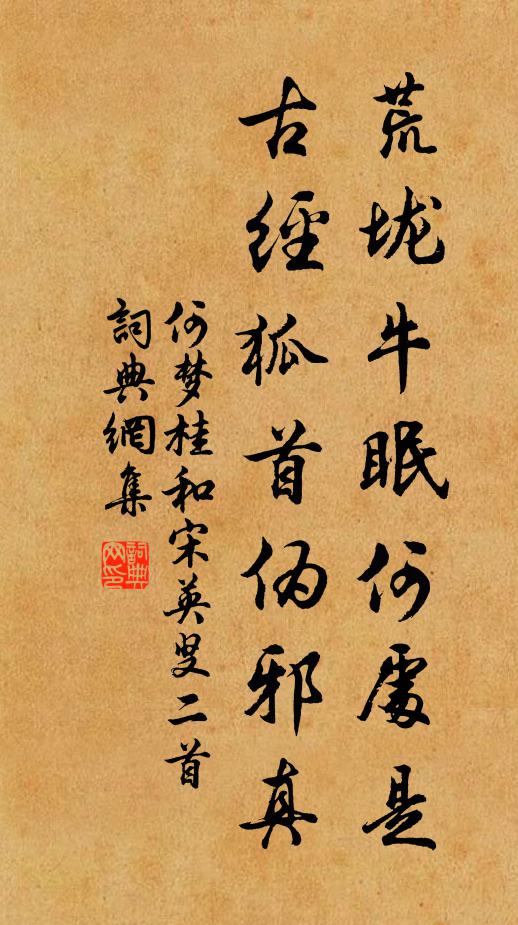 荒垅牛眠何處是
古經狐首偽邪真
何梦桂和宋英叟二首
詞典網集
詞典网印